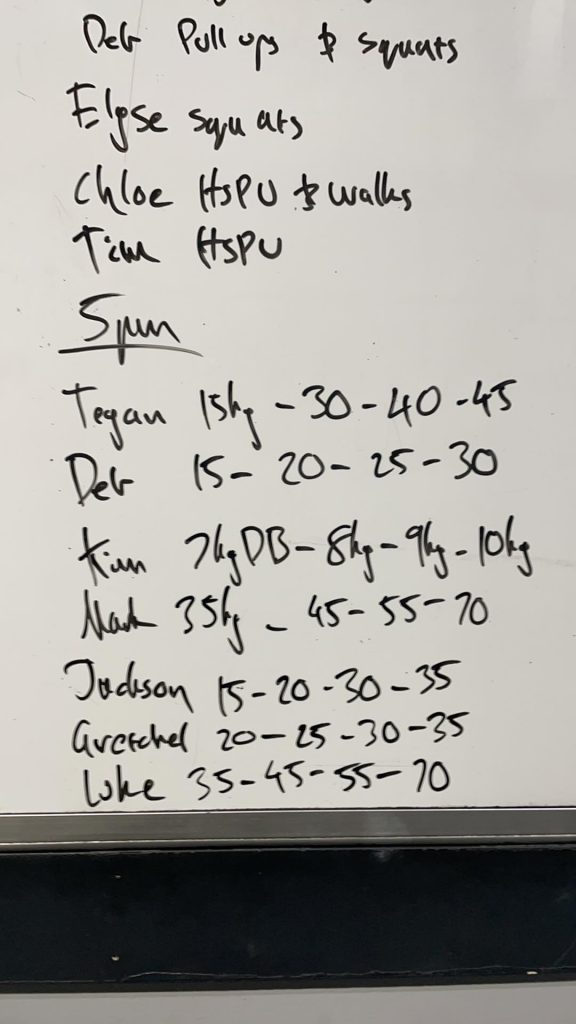 Deb Pull ups & squats
Elyse squats
Chloe HSPU & walks
Tim HSPU
5pm
Tegan 15kg - 30 - 40 - 45
Deb 15 - 20 - 25 - 30
Kim 7kg DB - 8kg - 9kg - 10kg
Mark 35kg - 45 - 55 - 70
Jackson 15 - 20 - 30 - 35
Gretchel 20 - 25 - 30 - 35
Luke 35 - 45 - 55 - 70